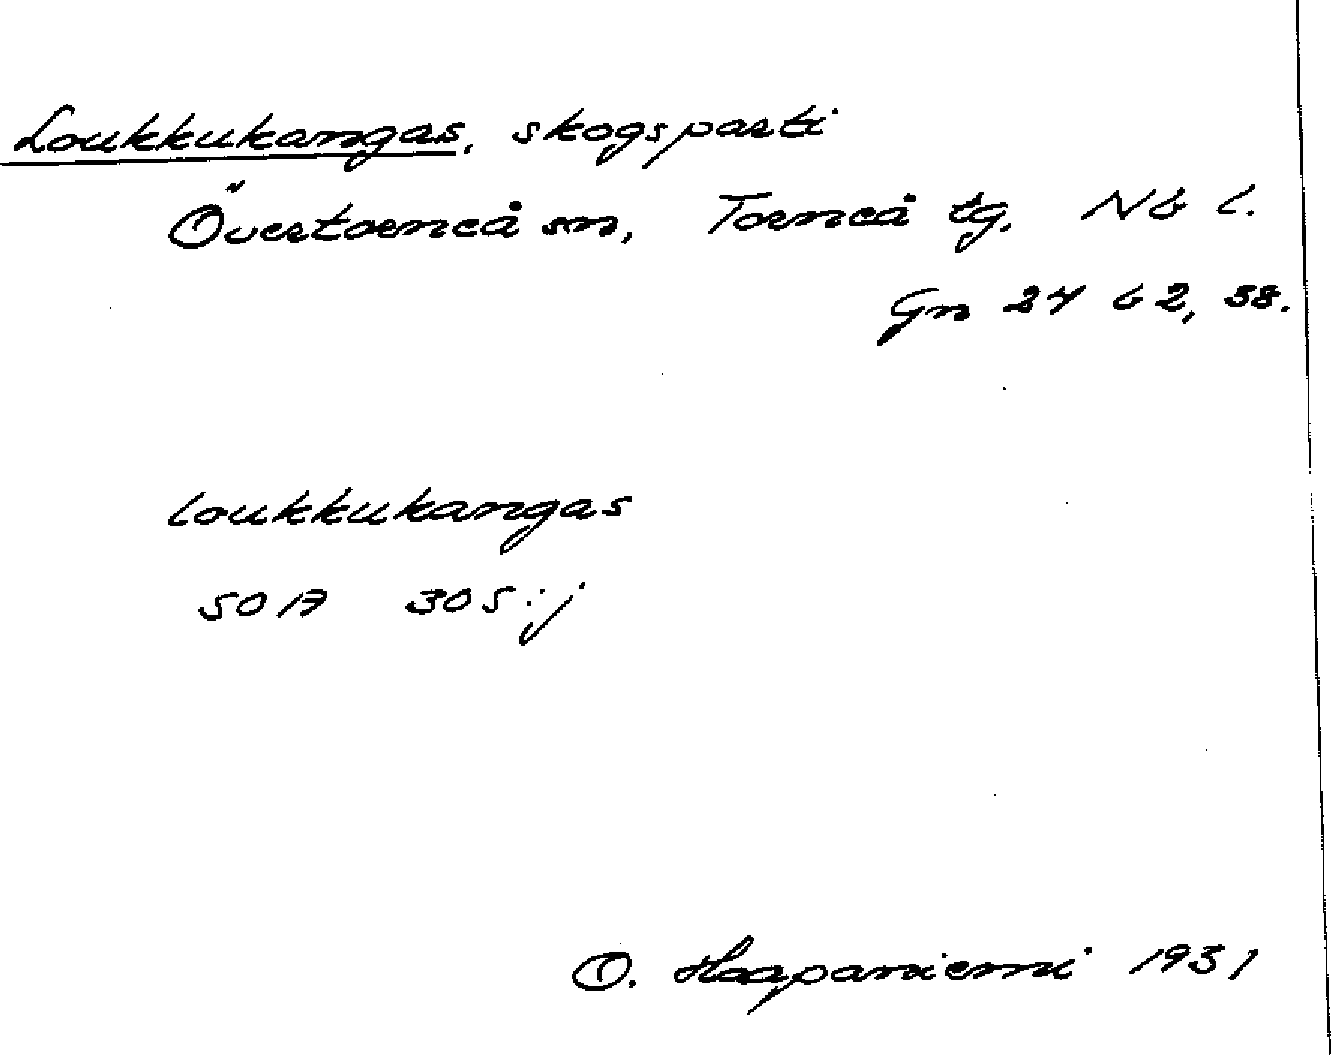 Loukkukangas, skogsparti
Övertorneå sn, Torneå tg. Nb l.
Gn 24 b 2, 38.
loukkukangas
SOA 305:j
O. Haapaniemi 1931